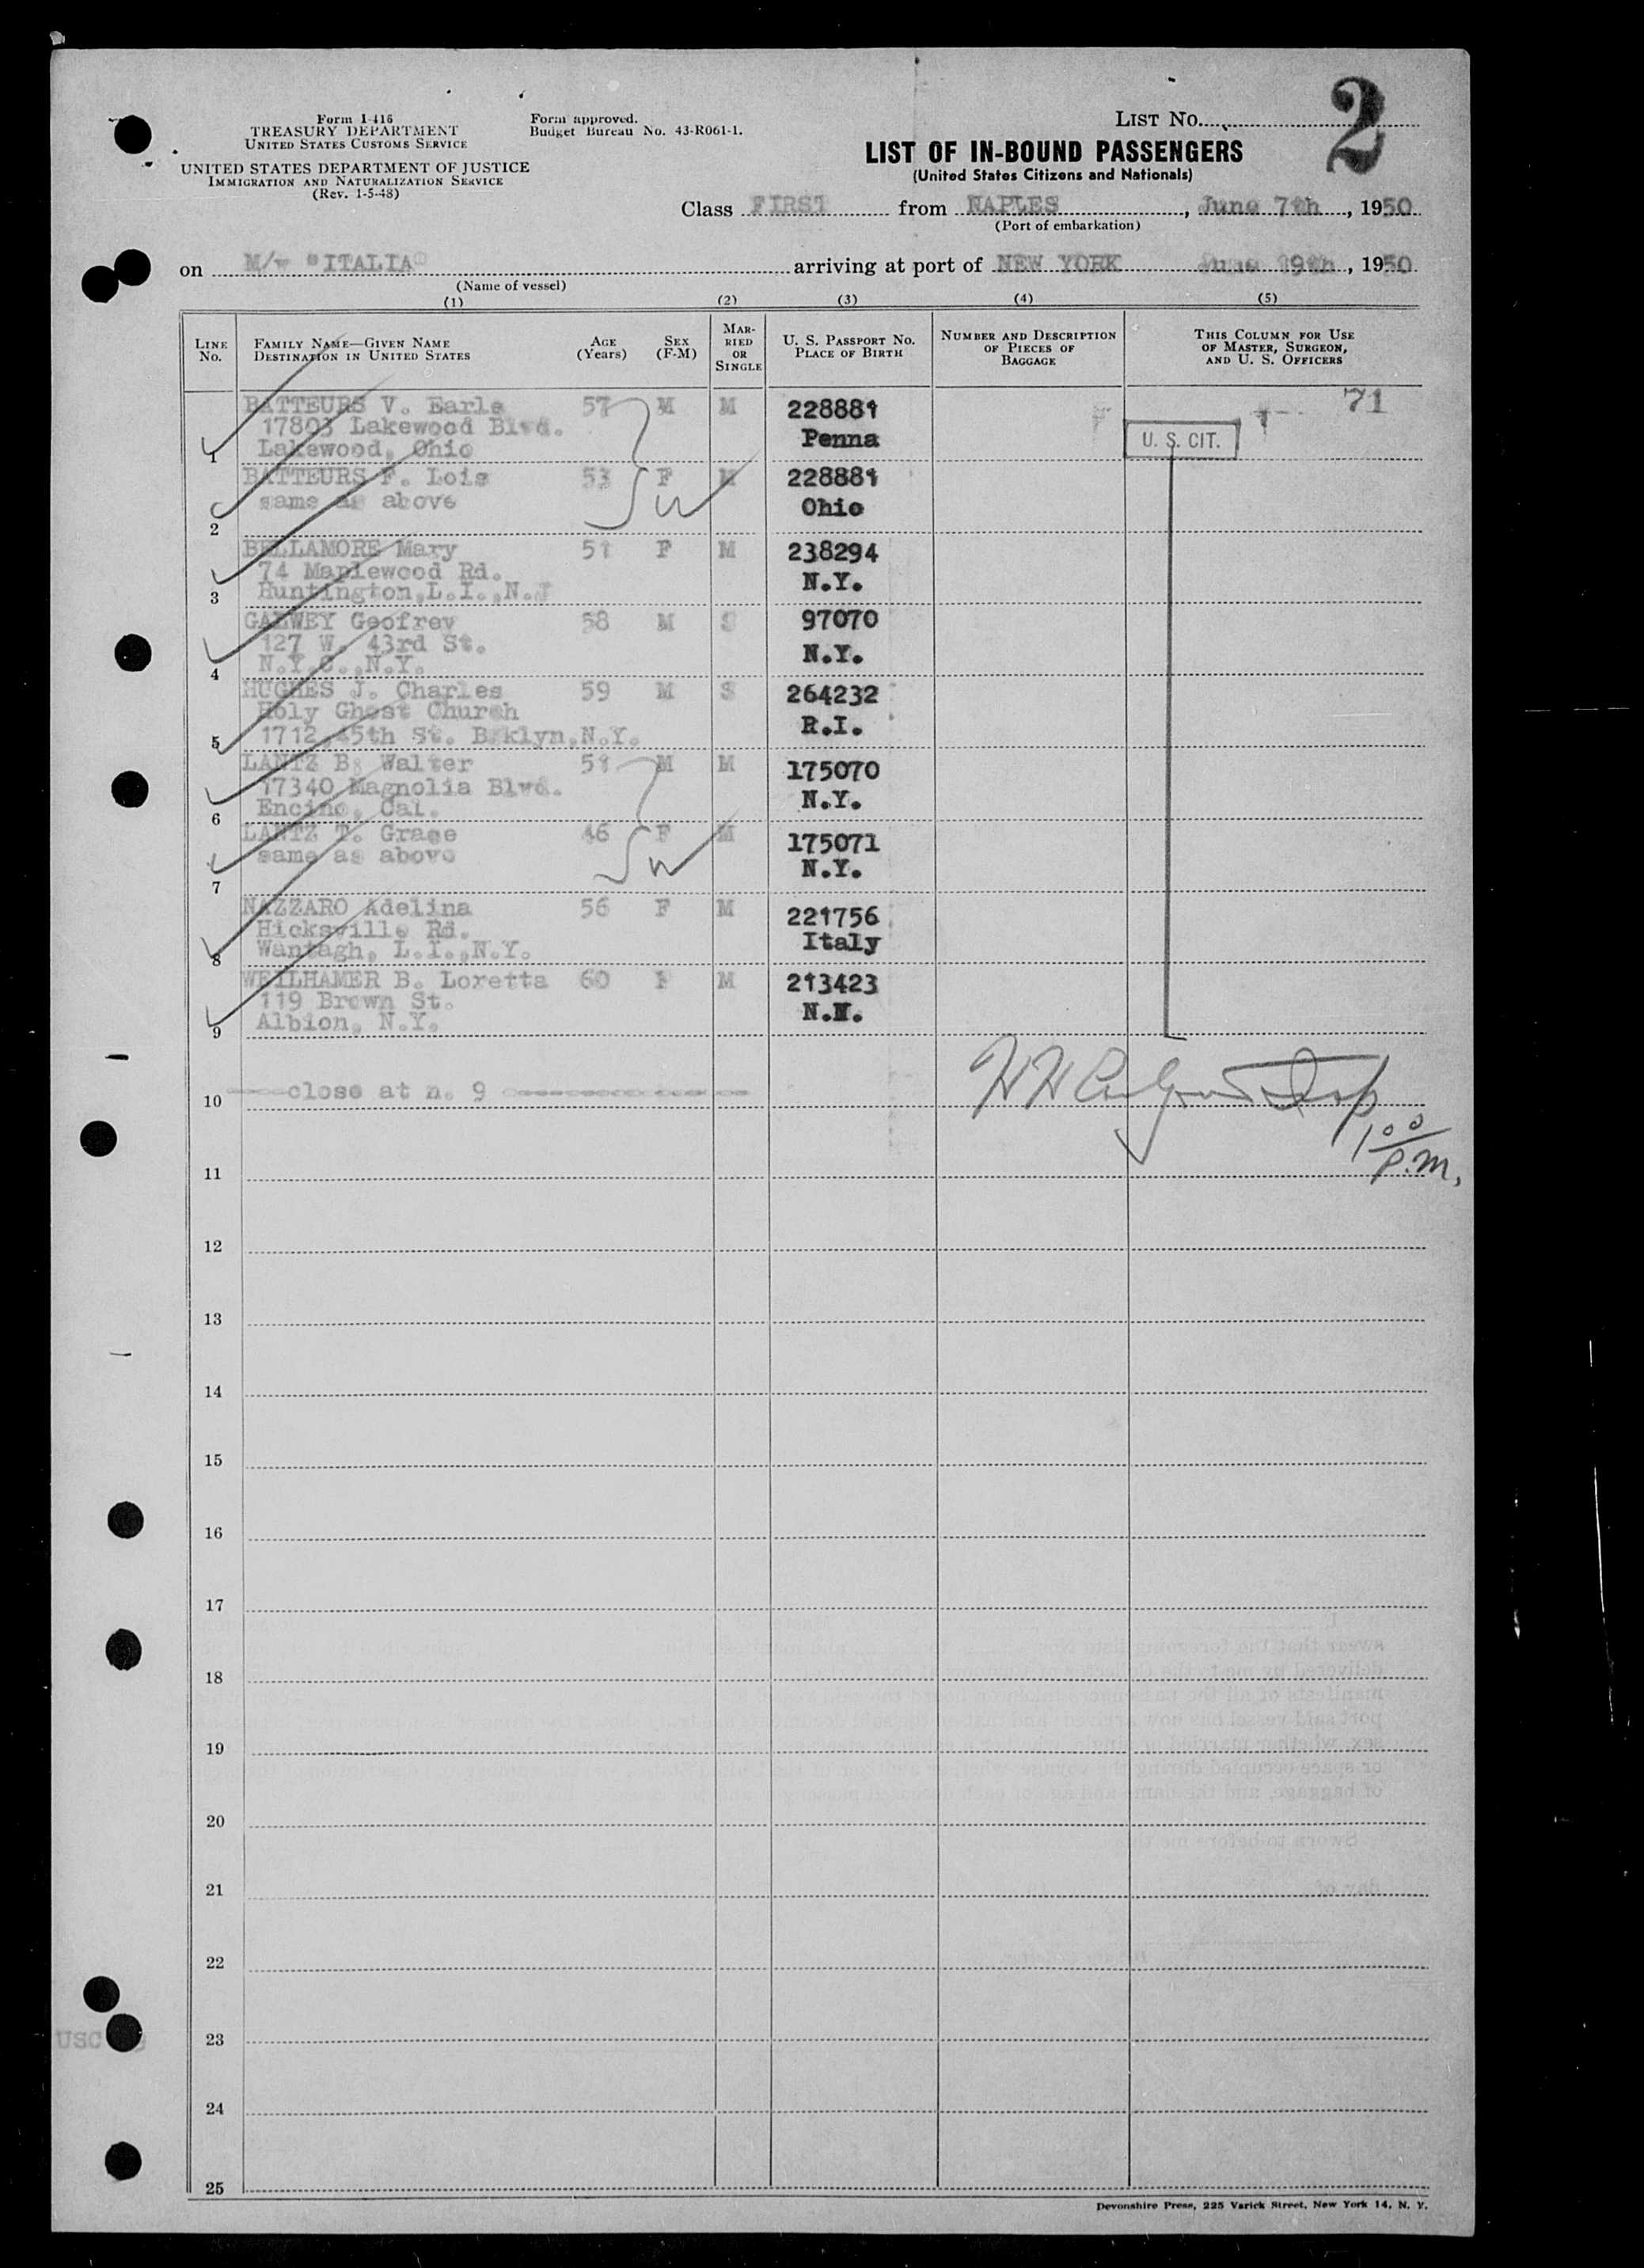 Form I-416
TREASURY DEPARTMENT
UNITED STATES CUSTOMS SERVICE
UNITED STATES DEPARTMENT OF JUSTICE
IMMIGRATION AND NATURALIZATION SERVICE
(Rev. 1-5-48)
Form approved.
Budget Bureau No. 43-R061-1.
LIST NO. 2
LIST OF IN-BOUND PASSENGERS
(United States Citizens and Nationals)
Class FIRST from NAPLES, June 7th, 1950
(Port of embarkation)
on "ITALIA" arriving at port of NEW YORK June 19th, 1950
(Name of vessel)
(1) (2) (3) (4) (5)
LINE NO. FAMILY NAME—GIVEN NAME DESTINATION IN UNITED STATES AGE (Years) SEX (F-M) MARRIED OR SINGLE U. S. PASSPORT NO. PLACE OF BIRTH NUMBER AND DESCRIPTION OF PIECES OF BAGGAGE THIS COLUMN FOR USE OF MASTER, SURGEON, AND U. S. OFFICERS
BATTEURS V. Earle 57 M M 228881 71
17803 Lakewood Blvd. Penna U. S. CIT.
1 Lakewood, Ohio
BATTEURS F. Lois 53 F M 228881
same as above Ohio
2
BELLAMORE Mary 51 F M 238294
74 Maplewood Rd. N.Y.
3 Huntington,L.I.,N.Y
GALWEY Geofrey 58 M S 97070
127 W. 43rd St. N.Y.
4 N.Y.C.,N.Y.
HUGHES J. Charles 59 M S 264232
Holy Ghost Church R.I.
5 1712,45th St. Brklyn,N.Y.
LANTZ B. Walter 51 M M 175070
17340 Magnolia Blvd. N.Y.
6 Encino, Cal.
LANTZ T. Grace 46 F M 175071
same as above N.Y.
7
NAZZARO Adelina 56 F M 221756
Hicksville Rd. Italy
8 Wantagh, L.I.,N.Y.
WEILHAMER B. Loretta 60 F M 213423
119 Brown St.
9 Albion, N.Y.
10 close at n. 9
1 00
P.M.
11
12
13
14
15
16
17
18
19
20
21
22
USC
23
24
25
Devonshire Press, 225 Varick Street, New York 14, N. Y.